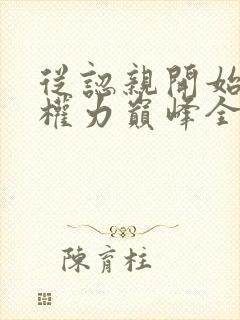 從認親開始
權力巔峰全
陳育柱